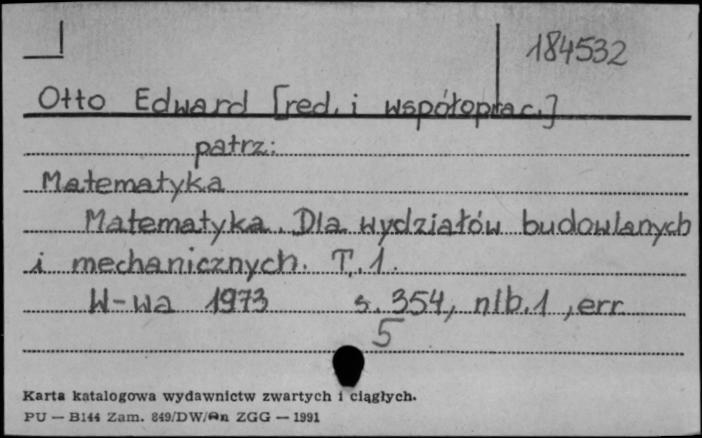 184532
Otto Edward [red. i współoprac.]
patrz:
Matematyka
Matematyka. Dla wydziałów budowlanych
i mechanicznych. T. 1.
W-wa 1973 s. 354, nlb. 1, err
5
Karta katalogowa wydawnictw zwartych i ciągłych.
PU — B144 Zam. 849/DW/An ZGG — 1991